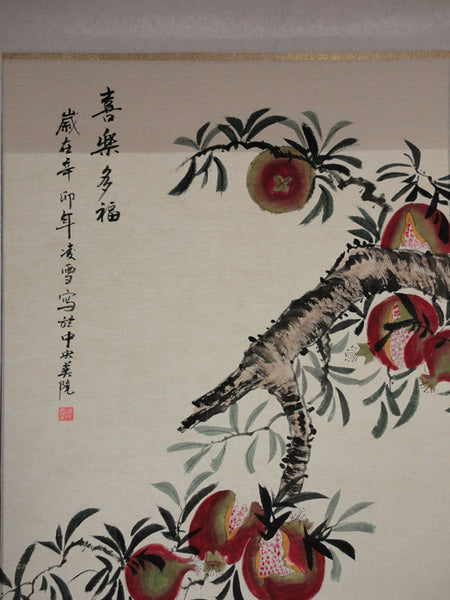 喜樂多福
歲在辛卯年凌雪寫於中央美院